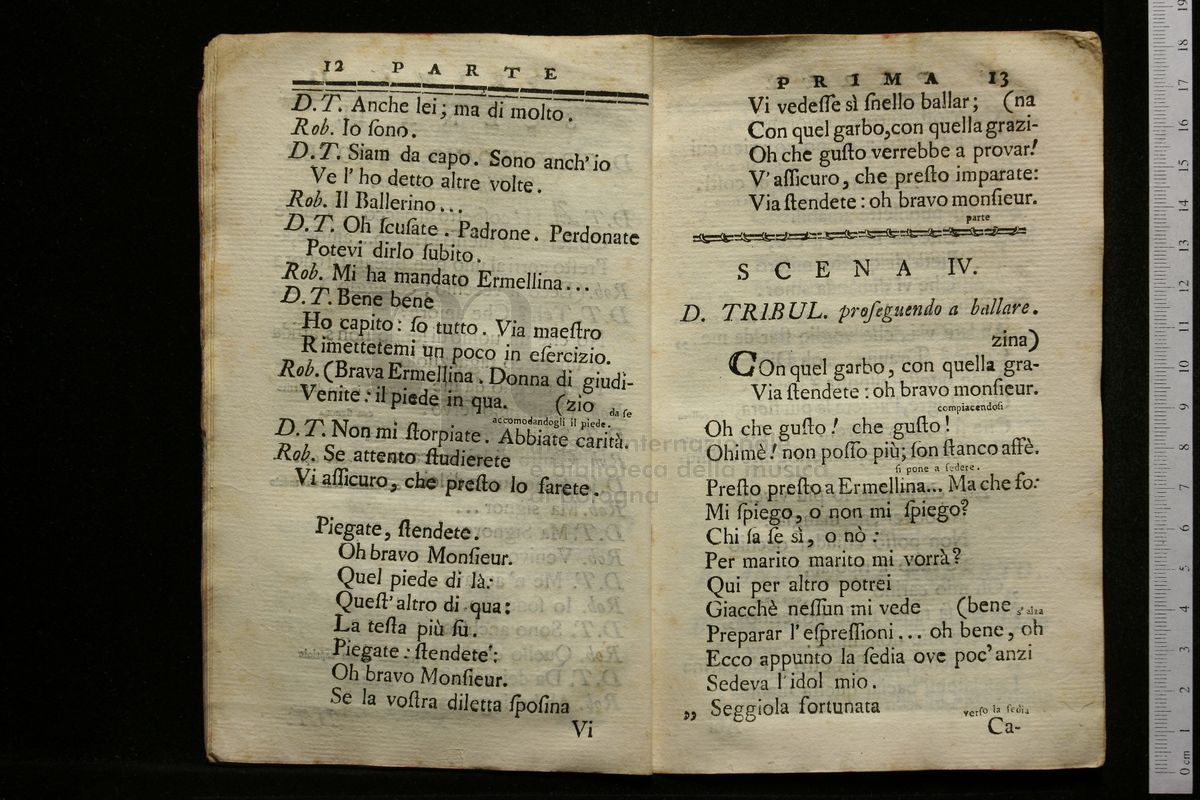 12 PARTE
D.T. Anche lei; ma di molto.
Rob. Io ſono.
D.T. Siam da capo. Sono anch'io
Ve l' ho detto altre volte.
Rob. Il Ballerino...
D.T. Oh ſcuſate. Padrone. Perdonate
Potevi dirlo ſubito.
Rob. Mi ha mandato Ermellina...
D.T. Bene benè
Ho capito: ſo tutto. Via maeſtro
Rimettetemi un poco in eſercizio.
Rob. (Brava Ermellina. Donna di giudi-
Venite: il piede in qua. (zio da ſe
accomodandogli il piede.
D.T. Non mi ſtorpiate. Abbiate carità.
Rob. Se attento ſtudierete
Vi aſſicuro, che preſto lo ſarete.
Piegate, ſtendete.
Oh bravo Monſieur.
Quel piede di là:
Queſt'altro di qua:
La teſta più ſù.
Piegate: ſtendete:
Oh bravo Monſieur.
Se la voſtra diletta ſpoſina
Vi
PRIMA 13
Vi vedeſſe sì ſnello ballar; (na
Con quel garbo, con quella grazi-
Oh che guſto verrebbe a provar!
V'aſſicuro, che preſto imparate:
Via ſtendete: oh bravo monſieur.
parte
SCENA IV.
D. TRIBUL. proſeguendo a ballare.
zina)
COn quel garbo, con quella gra-
Via ſtendete: oh bravo monſieur.
compiacendoſi
Oh che guſto! che guſto!
Ohimè! non poſſo più; ſon ſtanco affè.
ſi pone a ſedere.
Preſto preſto a Ermellina... Ma che fo:
Mi ſpiego, o non mi ſpiego?
Chi ſa ſe sì, o nò:
Per marito marito mi vorrà?
Qui per altro potrei
Giacchè neſſun mi vede (bene s'alza
Preparar l'eſpreſſioni... oh bene, oh
Ecco appunto la ſedia ove poc'anzi
Sedeva l'idol mio.
„ Seggiola fortunata verſo la ſedia
Ca-
internazionale
e biblioteca della musica
bologna